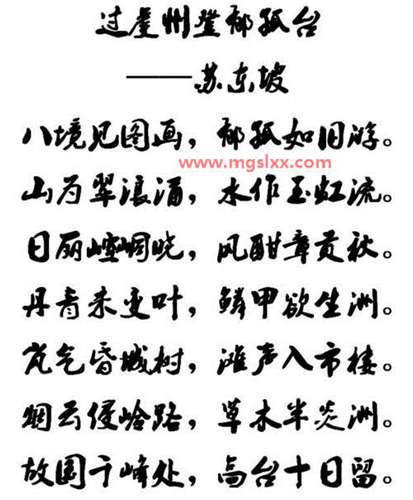 过虔州登郁孤台
——苏东坡
八境见图画，郁孤如旧游。
www.mgslxx.com
山为翠浪涌，水作玉虹流。
日丽崆峒晓，风酣章贡秋。
丹青未变叶，鳞甲欲生洲。
岚气昏城树，滩声入市楼。
烟云侵岭路，草木半炎洲。
故国千峰处，高台十日留。